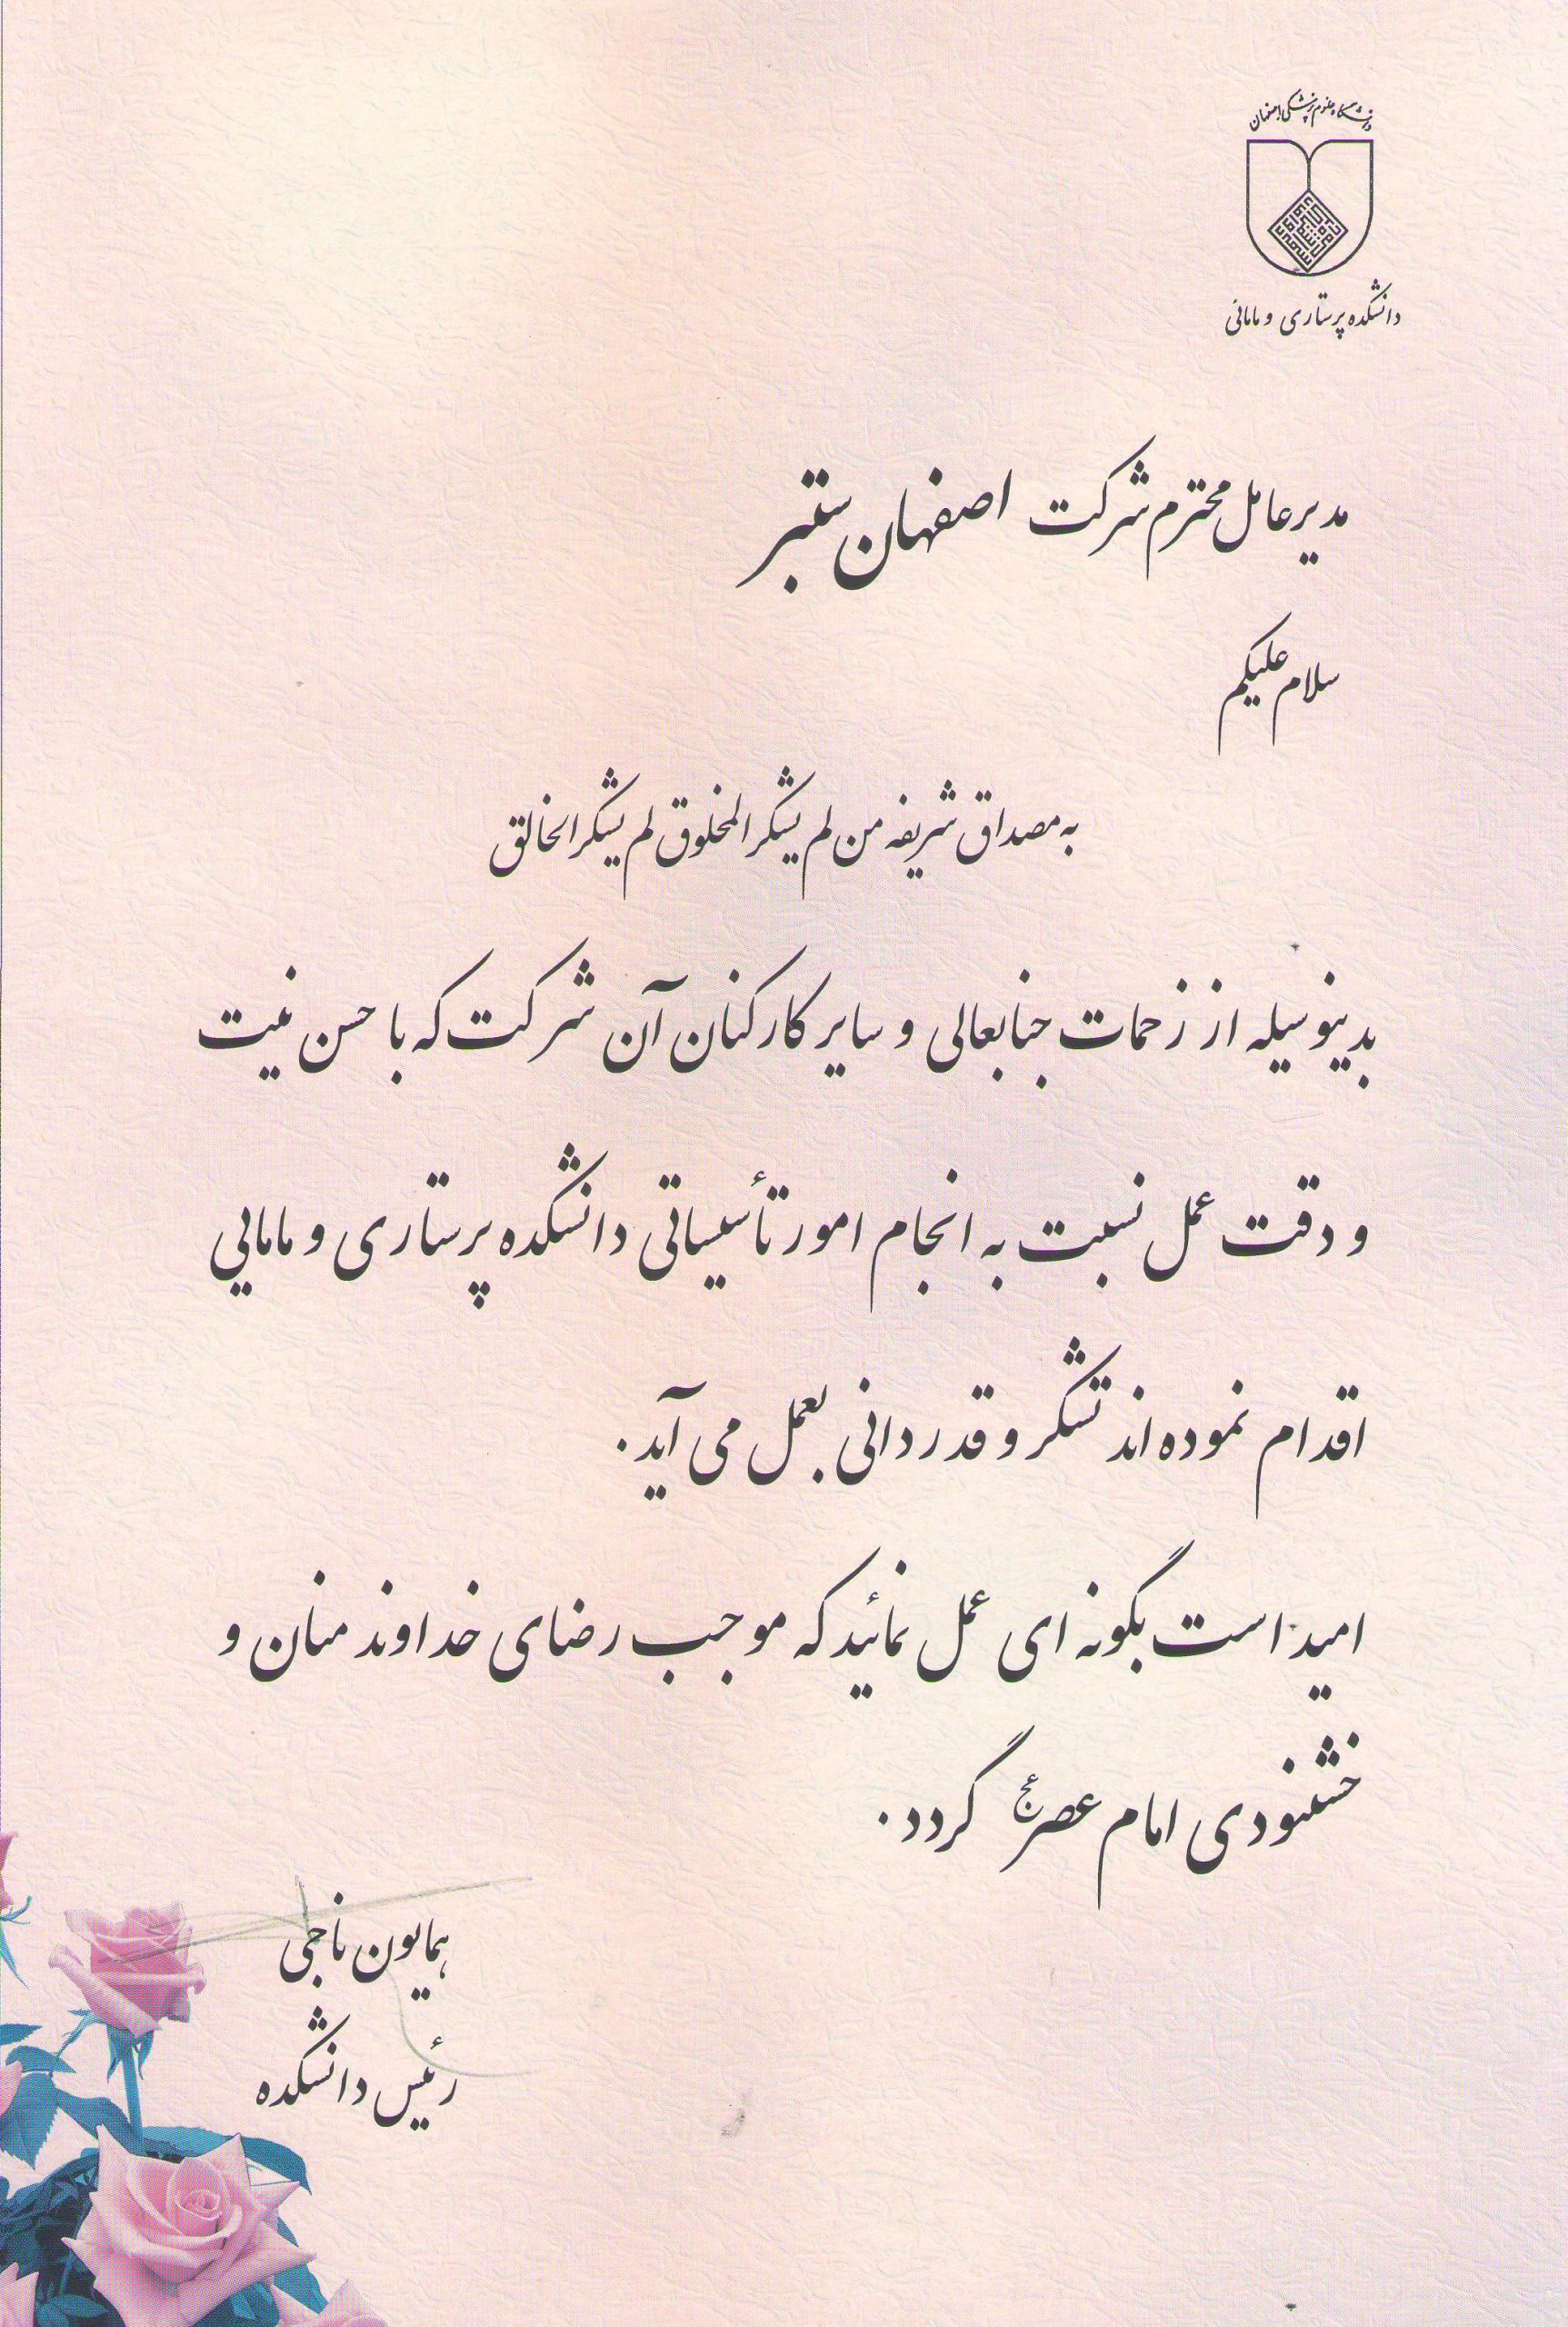 دانشگاه علوم پزشکی اصفهان
دانشکده پرستاری و مامائی
مدیرعامل محترم شرکت اصفهان ستبر
سلام علیکم
به مصداق شریفه من لم یشکر المخلوق لم یشکر الخالق
بدینوسیله از زحمات جنابعالی و سایر کارکنان آن شرکت که با حسن نیت
و دقت عمل نسبت به انجام امور تأسیساتی دانشکده پرستاری و مامایی
اقدام نموده اند تشکر و قدردانی بعمل می آید.
امید است بگونه ای عمل نمائید که موجب رضای خداوند منان و
خشنودی امام عصر عج گردد.
همایون ناجی
رئیس دانشکده